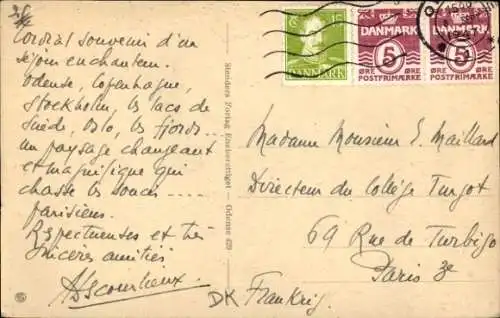 Cordial souvenir d'un
séjour enchanteur.
Odense, Copenhague,
Stockholm, les lacs de
Suède, Oslo, les fjords...
un paysage changeant
et magnifique qui
chasse les soucis ....
parisiens.
Respectueuses et très
sincères amitiés
Stenders Forlag Eneberettiget - Odense
15
DANMARK
DANMARK
5
ØRE ØRE
POSTFRIMÆRKE
DANMARK
5
ØRE ØRE
POSTFRIMÆRKE
Madame Monsieur E. Maillard
Directeur du Collège Turgot
69 Rue de Turbigo
Paris 3e
DK Frankrig.